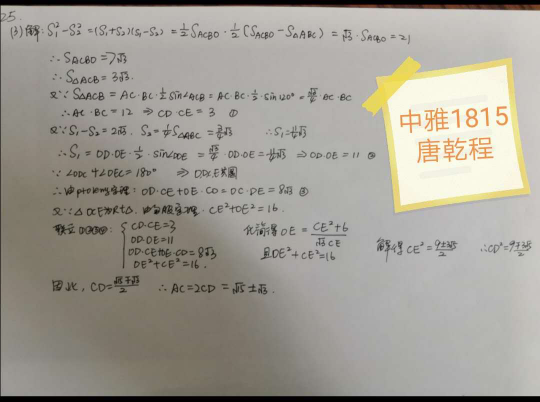 25.
(3)解: S₁²-S₂²=(S₁+S₂)(S₁-S₂)=½S_ACBO·½(S_ACBO-S_△ABC)=√3·S_ACBO=21
∴S_ACBO=7√3
∴S_△ACB=3√3.
又∵S_△ACB=AC·BC·½sin∠ACB=AC·BC·½·sin120°=√3/4·AC·BC
∴AC·BC=12 ⇒ CD·CE=3 ①
又∵S₁-S₂=2√3, S₂=¼S_△ABC=¾√3 ∴S₁=11/4√3
∴S₁=OD·OE·½·sin∠DOE=√3/4·OD·OE=11/4√3 ⇒OD·OE=11 ②
∵∠ODC+∠OEC=180° ⇒O,D,C,E共圆
∴由ptolemy定理: OD·CE+OE·CD=OC·DE=8√3 ③
又∵△OCE为Rt△, 由勾股定理. CE²+OE²=16.
联立①②③④: CD·CE=3
OD·OE=11
OD·CE+OE·CD=8√3
OE²+CE²=16.
化简得OE=(CE²+6)/(√3CE)
且OE²+CE²=16
解得CE²=
∴CD²=
因此, CD=
∴AC=2CD=
中雅1815
唐乾程